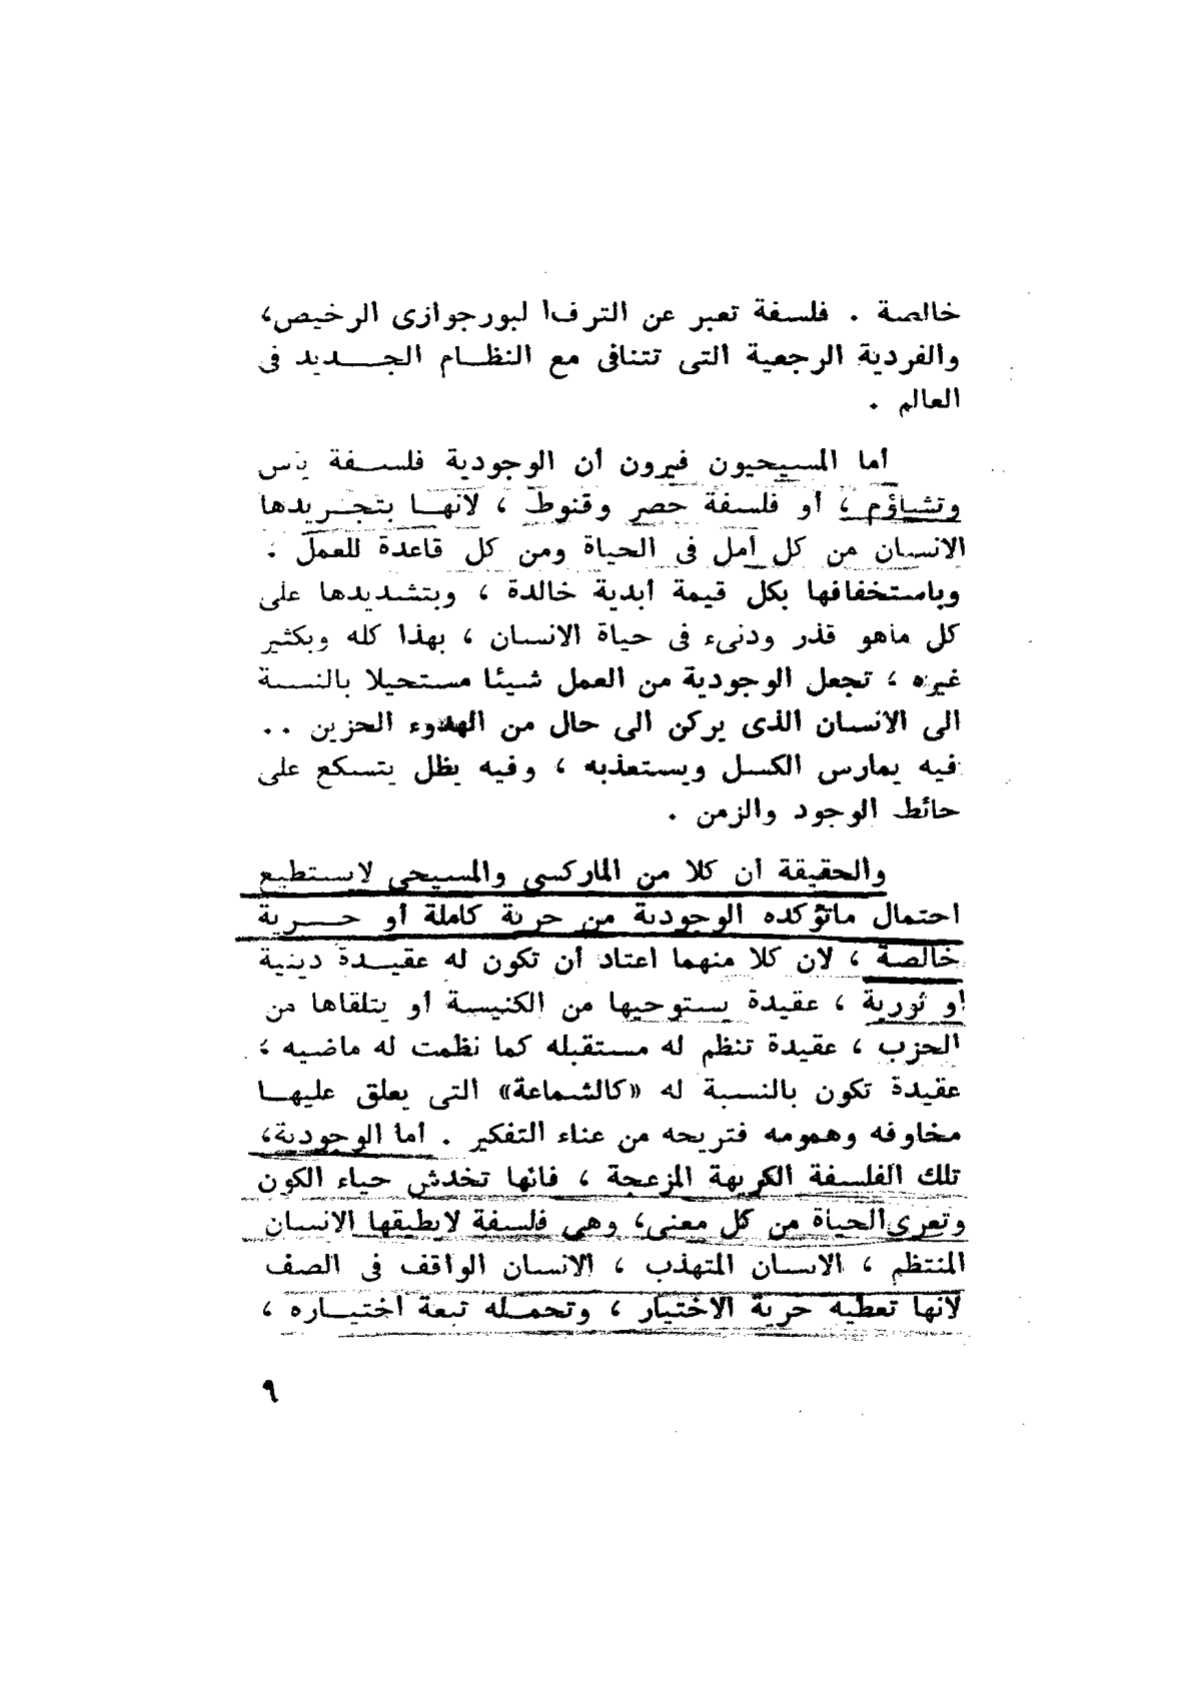 خالصة . فلسفة تعبر عن الترفا لبورجوازى الرخيص،
والفردية الرجعية التى تتنافى مع النظام الجديد فى
العالم .
أما المسيحيون فيرون أن الوجودية فلسفة يأس
وتشاؤم ، أو فلسفة حصر وقنوط ، لانها بتجريدها
الانسان من كل أمل فى الحياة ومن كل قاعدة للعمل .
وباستخفافها بكل قيمة أبدية خالدة ، وبتشديدها على
كل ماهو قذر ودنىء فى حياة الانسان ، بهذا كله وبكثير
غيره ، تجعل الوجودية من العمل شيئا مستحيلا بالنسبة
الى الانسان الذى يركن الى حال من الهدوء الحزين ..
فيه يمارس الكسل ويستعذبه ، وفيه يظل يتسكع على
حائط الوجود والزمن .
والحقيقة أن كلا من الماركسى والمسيحى لايستطيع
احتمال ماتؤكده الوجودية من حرية كاملة أو حرية
خالصة ، لان كلا منهما اعتاد أن تكون له عقيدة دينية
أو ثورية ، عقيدة يستوحيها من الكنيسة أو يتلقاها من
الحزب ، عقيدة تنظم له مستقبله كما نظمت له ماضيه ،
عقيدة تكون بالنسبة له «كالشماعة» التى يعلق عليها
مخاوفه وهمومه فتريحه من عناء التفكير . أما الوجودية،
تلك الفلسفة الكريهة المزعجة ، فانها تخدش حياء الكون
وتعرى الحياة من كل معنى، وهى فلسفة لايطيقها الانسان
المنتظم ، الانسان المتهذب ، الانسان الواقف فى الصف
لانها تعطيه حرية الاختيار ، وتحمله تبعة اختياره ،
٩